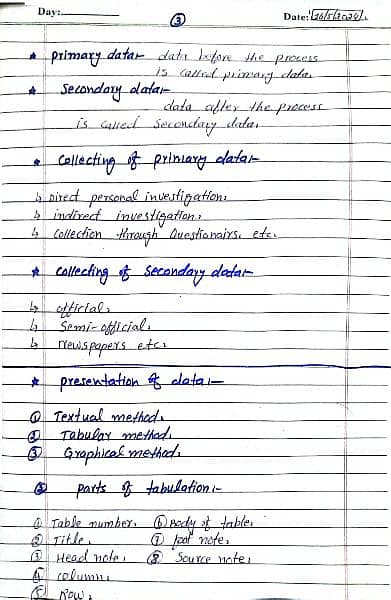 Day:
③
Date: 26/5/2024
★ primary data:- data before the process
is called primary data.
★ Secondary data:-
data after the process
is called Secondary data.
★ Collecting of primary data:-
↳ Direct personal investigation.
↳ indirect investigation.
↳ Collection through Questionairs. etc.
★ Collecting of Secondary data:-
↳ official.
↳ Semi-official.
↳ Newspapers etc.
★ presentation of data:-
① Textual method.
② Tabular method.
③ Graphical method.
parts of tabulation:-
① Table number. ⑥ Body of table.
② Title. ⑦ foot note.
③ Head note. ⑧ Source note.
④ column.
⑤ Row.